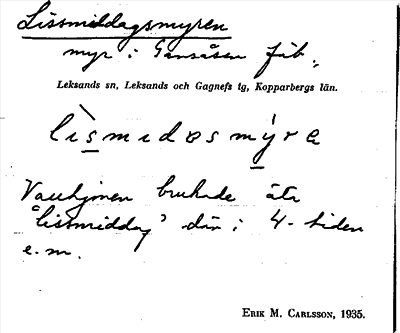 Lissmiddagsmyren
myr i Gansåsen fäb.,
Leksands sn, Leksands och Gagnefs tg, Kopparbergs län.
lìsmidəsmýra
Vallhjonen brukade äta
"lissmiddag" där i 4-tiden
e.m.
ERIK M. CARLSSON, 1935.